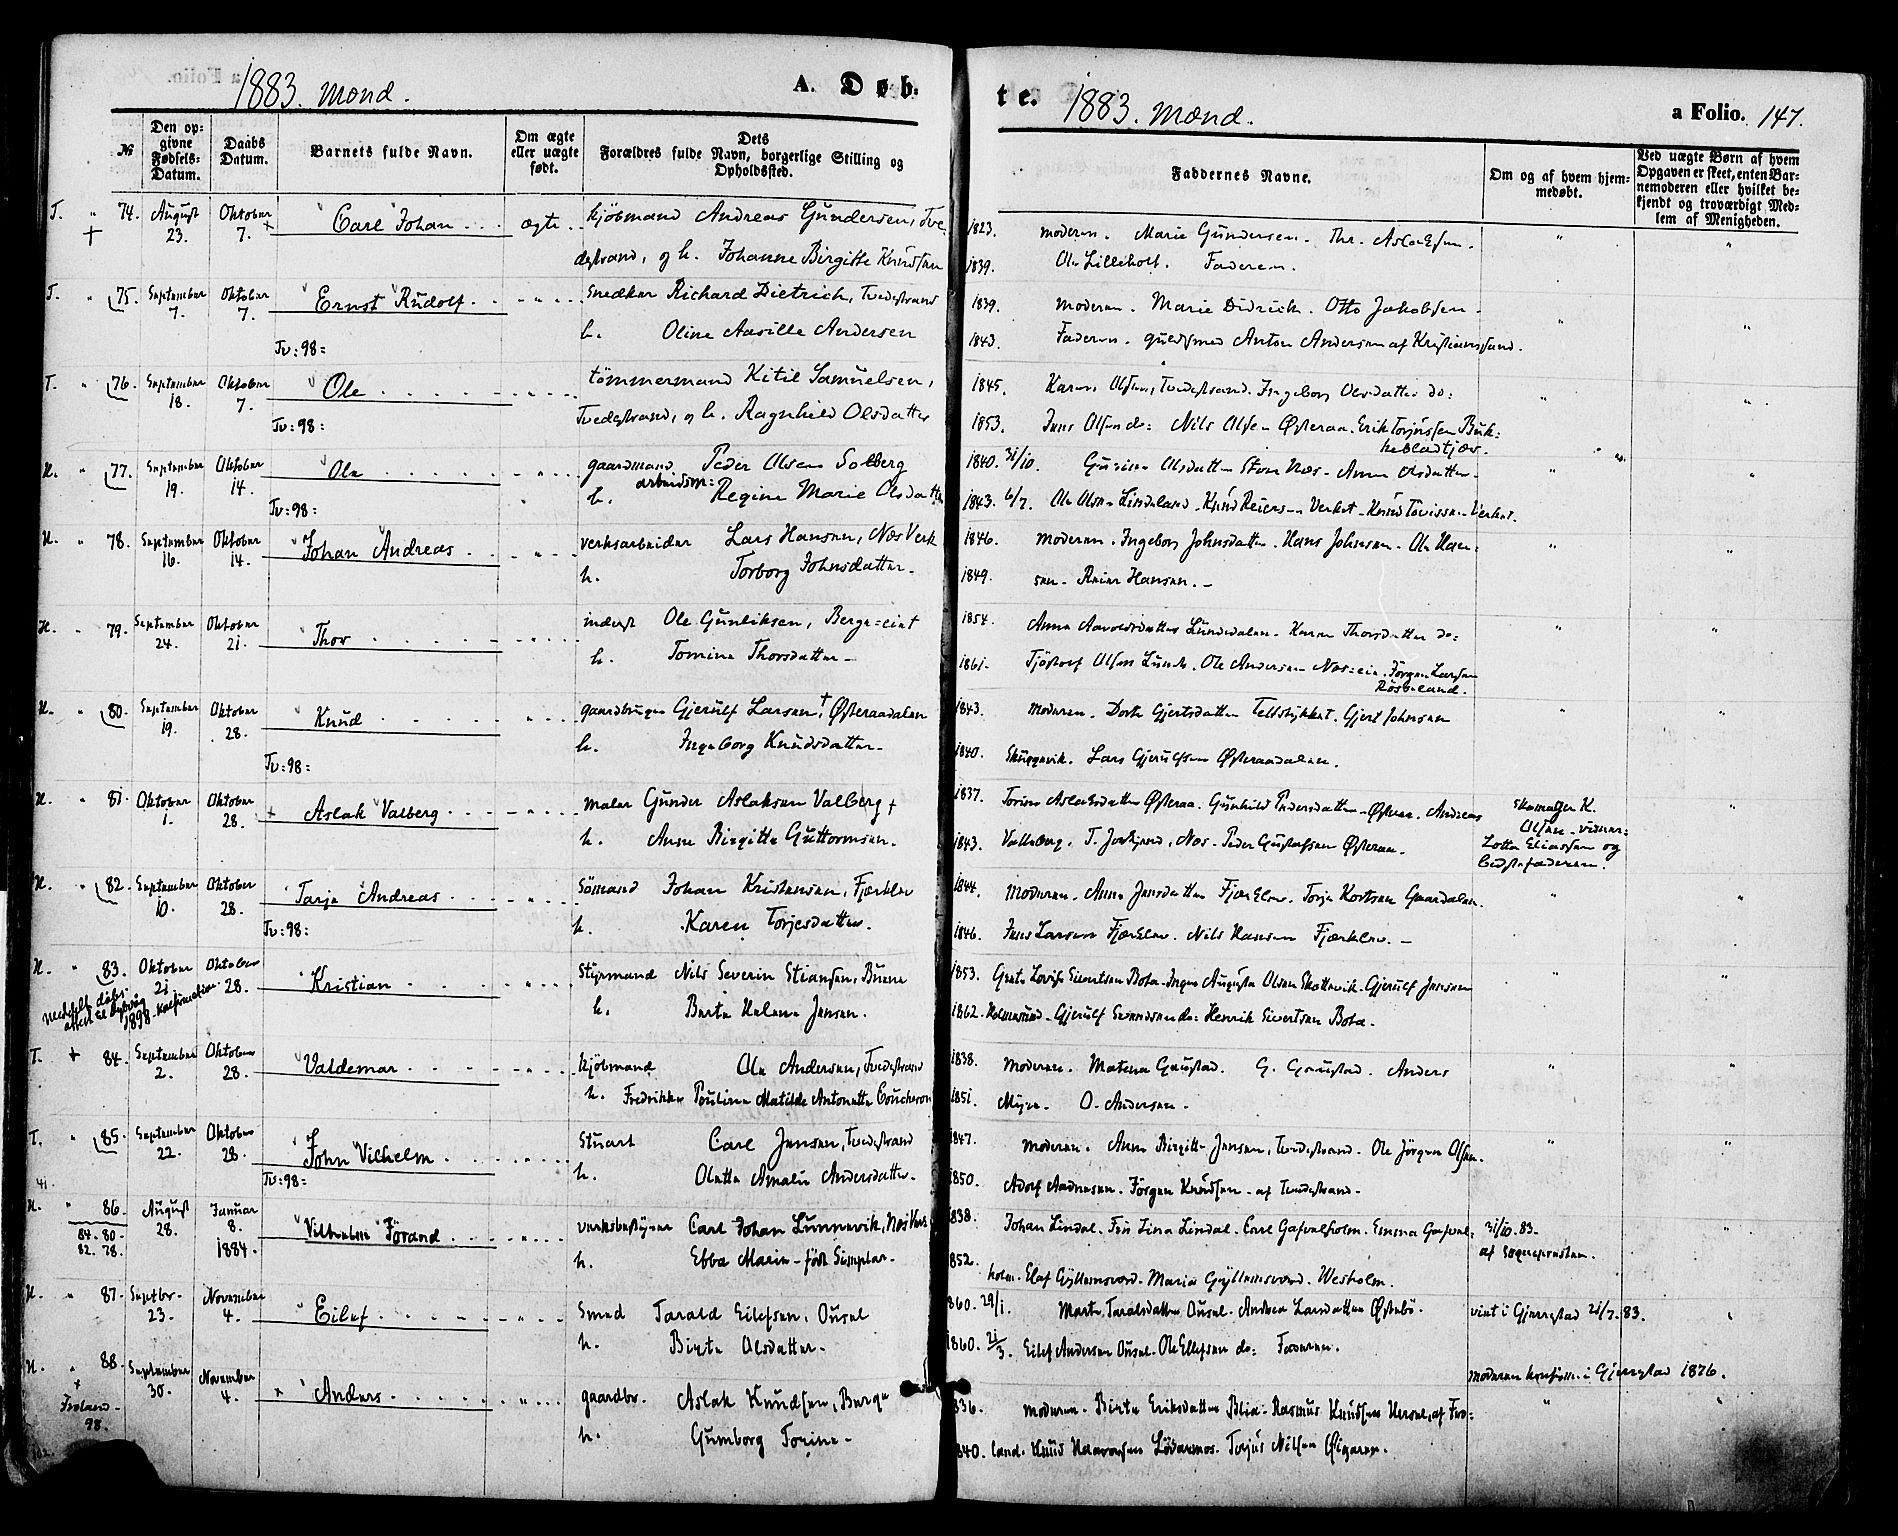 1883. Mænd. A. Døb-
te. 1883. Mænd. a Folio. 147.
№ Den opgivne Fødsels-Datum. Daabs Datum. Barnets fulde Navn. Om ægte eller uægte født. Dets Forældres fulde Navn, borgerlige Stilling og Opholdssted.
Faddernes Navne. Om og af hvem hjemmedøbt. Ved uægte Børn af hvem Opgaven er skeet, enten Barnemoderen eller hvilket bekjendt og troværdigt Medlem af Menigheden.
T. " 74. August 23. Oktober 7. Carl Johan . . . ægte . . Kjöbmand Andreas Gundersen, Tve-
destrand, og h. Johanne Birgitte Knudsen
1823. Moderen. Marie Gundersen. Thr. Aslaksen.
1839. Ole Lilleholt. Faderen.
T. " 75. September 7. Oktober 7. Ernst Rudolf . Snedker Richard Dietrich, Tvedestrand
Tv: 98: h. Oline Aasille Andersen
1839. Moderen. Marie Didrich. Otto Jakobsen.
1843. Faderen. Guldsmed Anton Andersen af Kristianssand.
T. " 76. September 18. Oktober 7. Ole . . . . . Tömmermand Kitil Samuelsen,
Tv: 98: Tvedestrand, og h. Ragnhild Olsdatter
1845. Karen Olsen, Tvedestrand. Ingeborg Olsdatter do:
1853. Jens Olsen do: Nils Olsen Østeraa. Erik Torjussen Buk-
kebladtjær.
H. " 77. September 19. Oktober 14. Ole . . . . . gaardmand Peder Olsen Solberg
arbeidsm:
Tv: 98: h. Regine Marie Olsdatter
1840. 31/10. Gurine Olsdatter Store Næs. Anne Olsdatter.
1843. 6/7. Ole Olsen Lindeland. Knud Reiersen Verket. Knud Tovissen Verket.
H. " 78. September 16. Oktober 14. Johan Andreas . . verksarbeider Lars Hansen, Næs Verk
h. Torborg Johnsdatter.
1846. Moderen. Ingeborg Johnsdatter. Hans Johnsen. Ole Han-
1849. sen. Reier Hansen. –
H. " 79. September 24. Oktober 21. Thor . . . . . inderst Ole Gunliksen, Berge=eiet
h. Tomine Thorsdatter –
1854. Anne Aanoldsdatter Lundedalen. Karen Thorsdatter do:
1861. Tjöstolf Olsen Lunde. Ole Andersen Næs=eie. Jörgen Larsen
Röseland.
H. " 80. September 19. Oktober 28. Knud . . . . . gaardbruger Gjerulf Larsen, Østeraadalen
Tv: 98: h. Ingeborg Knudsdatter.
1843. Moderen. Dorte Gjertsdatter Teltstykket. Gjert Johnsen
1840. Skuggevik. Lars Gjerulfsen Østeraadalen.
H. " 81. Oktober 1. Oktober 28. + Aslak Valberg . . . maler Gunder Aslaksen Valberg +
h. Anne Birgitte Guttormsen.
1837. Torine Aslaksdatter Østeraa. Gunhild Pedersdatter Østeraa. Andreas
1843. Valleberg. T. Jorkjend, Næs. Peder Gustafsen Østeraa.
Skomager K. Olsen. vidner: Lotta Eliassen og bedstefaderen.
H. " 82. September 10. Oktober 28. Tarje Andreas . . . Sömand Johan Kristensen, Fjærklev
Tv: 98: h. Karen Torjesdatter.
1844. Moderen. Anne Jensdatter Fjærklev. Torje Kortsen Gaardalen.
1846. Jens Larsen Fjærklev. Nils Hansen Fjærklev. –
H. " 83. Oktober 21. Oktober 28. Kristian . . . . Styrmand Nils Severin Stiansen, Buene
Meddelt dåbsattest til Dybvåg 1898. Konfirmation
h. Berte Helene Jensen.
1853. Grete Lovise Sivertsen Bota. Inger Augusta Olsen Skottevik. Gjerulf Jensen
1862. Holmesund. Gjerulf Svendsen do: Henrik Sivertsen Bota.
T. + 84. September 2. Oktober 28. Valdemar . . . . Kjöbmand Ole Andersen, Tvedestrand
h. Fredrikke Pouline Matilde Antonette Coucheron
1838. Moderen. Matena Gaustad. G. Gaustad. Anders
1851. Myre. O. Andersen.
T. " 85. September 22. Oktober 28. John Vilhelm . . . Stuart Carl Jensen, Tvedestrand
Tv: 98: h. Olette Amalie Andersdatter.
1847. Moderen. Anne Birgitte Jensen, Tvedestrand. Ole Jörgen Olsen.
1850. Adolf Aadnesen. Jörgen Knudsen. af Tvedestrand.
41.
H. " 86. August 28. Januar 8. 1884. Vilhelm Förand . . . verksbestyrer Carl Johan Lunnevik, Næs Verk
84. 80. 82. 78.
h. Ebba Marie – født Simplar.
1838. Johan Lindal. Fru Lina Lindal. Carl Gaffelholm. Emma Gaffel-
1852. holm. Elof Gyllensvärd. Maria Gyllensvärd. Wesholm.
31/10. 83. af Sognepresten.
H. " 87. Septbr. 23. November 4. Eilef . . . . . Smed Tarald Eilefsen, Ousel
h. Birte Olsdatter.
1860. 29/1. Marte Taraldsdatter Ousel. Andrea Larsdatter Østebö.
1860. 21/3. Eilef Andersen Ousel. Ole Ellefsen do: Faderen.
viet i Gjerrestad 21/7. 83.
Moderen konfirm. i Gjerrestad 1876.
H. " 88. + Froland 98. September 30. November 4. + Anders . . . . gaardbr. Aslak Knudsen, Berge
h. Gumborg Torine –
1836. Moderen. Birte Eriksdatter Blia. Rasmus Knudsen Hersel, af Fro-
1840. land. Knud Haavorsen Lövdanmos. Terjus Nilsen Øigaren.
102.